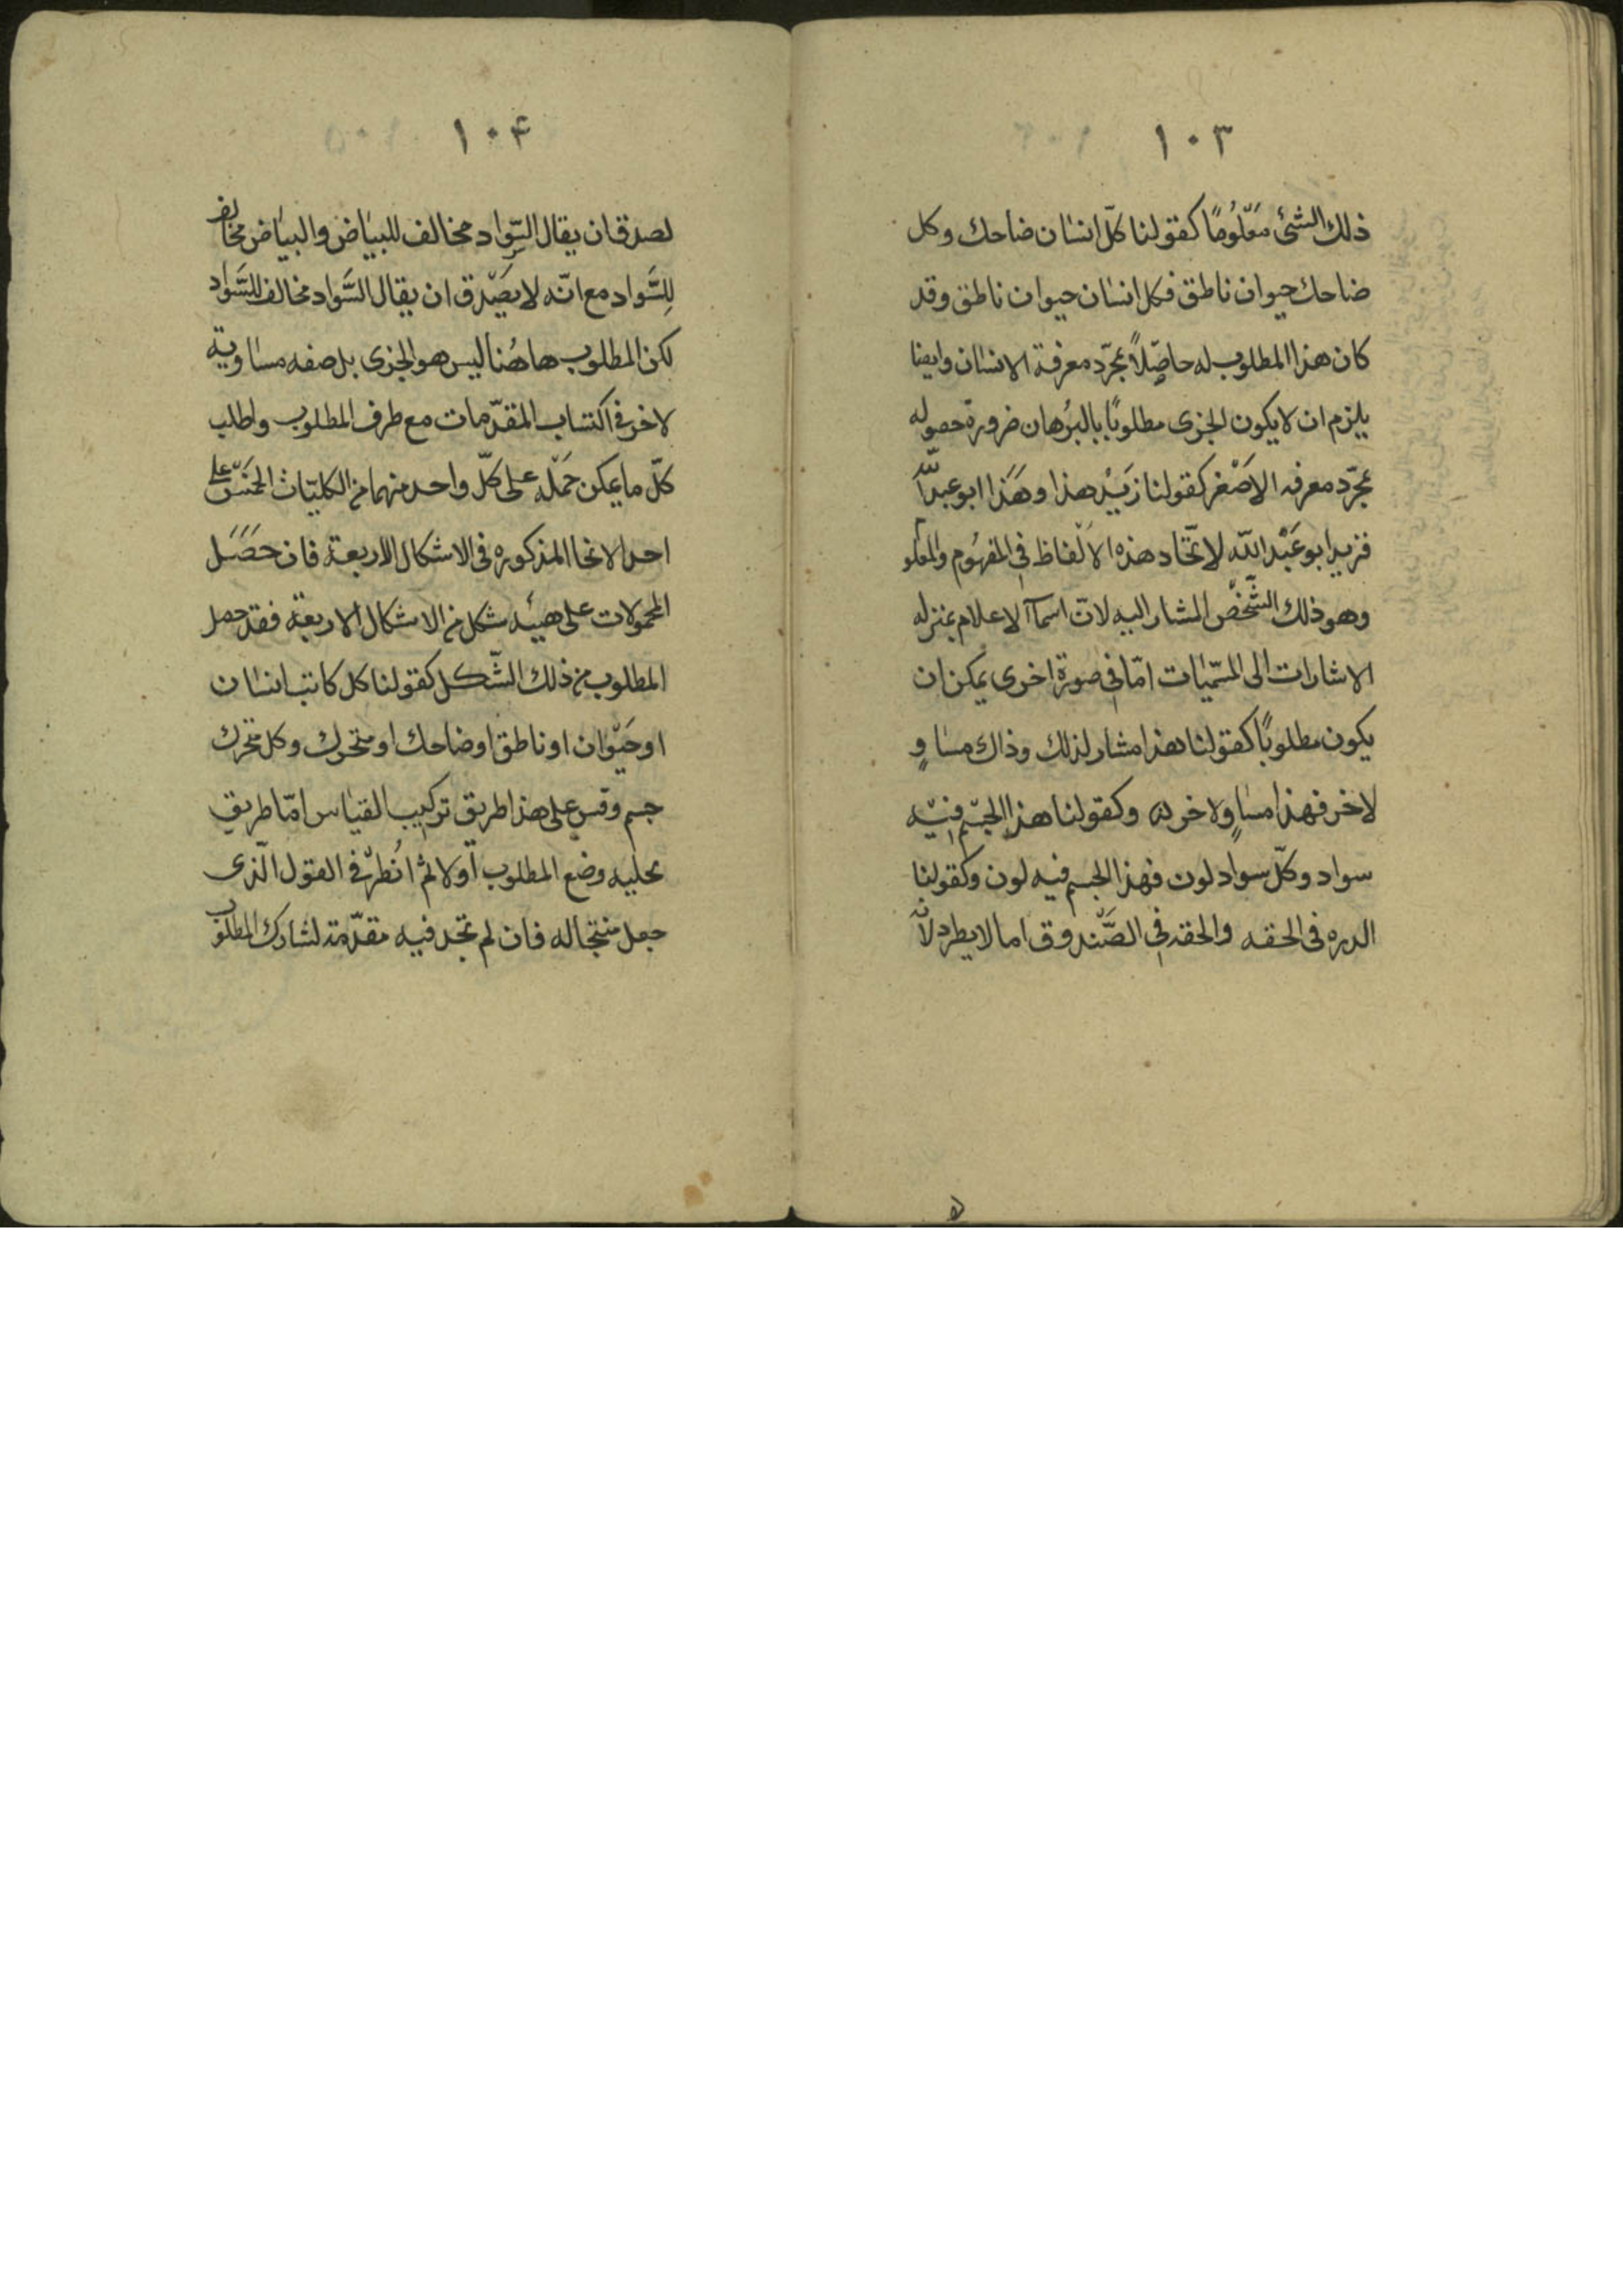 ١٠٣
ذلك الشئ معلُومًا كقولنا كلّ انسان ضاحك وكل
ضاحك حيوان ناطق فكل انسان حيوان ناطق وقد
كان هذا المطلوب له حاصلاً بمجرّد معرفة الانسان وايضا
يلزم ان لا يكون الجزى مطلوبًا بالبرُهان ضرورة حصوله
بمجرّد معرفه الاصْغر كقولنا زيْد هذا وهَذا ابو عبد اللّه
فزيد ابو عَبْد اللّه لاتّحاد هذه الالْفاظ فى المفهُوم والمعلو
وهو ذلك الشّخْص المشار اليه لانّ اسمآ الاعلام بمنزله
الاشارات الى المسمّيات امّا فى صورة اخرى يمكن ان
يكون مطلوبًا كقولنا هذا مشار لذلك وذاك مساوٍ
لاخر فهذا مساوٍ ولاخر له وكقولنا هذا الجسْم فيْه
سواد وكلّ سواد لون فهذا الجسم فيه لون وكقولنا
الدره فى الحقه والحقه فى الصّندوق اما لا يطرد لانّه
١٠۴
لصدق ان يقال السّواد مخالف للبيَاض والبيَاض مخالف
للِسَّواد مع انّه لا يصْدق ان يقال السَّواد مخالف للسَّواد
لكن المطلوب هاهُنا ليس هو الجزى بل صفه مساوية
لاخر فى اكتساب المقدّمات مع طرف المطلوب واطلب
كلّ ما يمكن حَمْله على كلّ واحد منهما من الكليّات الخمسْ على
احد الانحا المذكوره فى الاشكال الاربعة فان حصَل
المحمولات على هيئه شكل من الاشكال الاربعة فقد حصل
المطلوب من ذلك الشّكل كقولنا كل كاتب انسان
او حَيْوان او ناطق او ضاحك او متحرك وكل متحرك
جسم وقس على هذا طريق تركيب القياس امّا طريق
تحليه وضع المطلوب اوّلا ثم انُطرْ فى القول الّذى
جعل منتجا له فان لم تجد فيه مقدّمة لشارك المطلوب